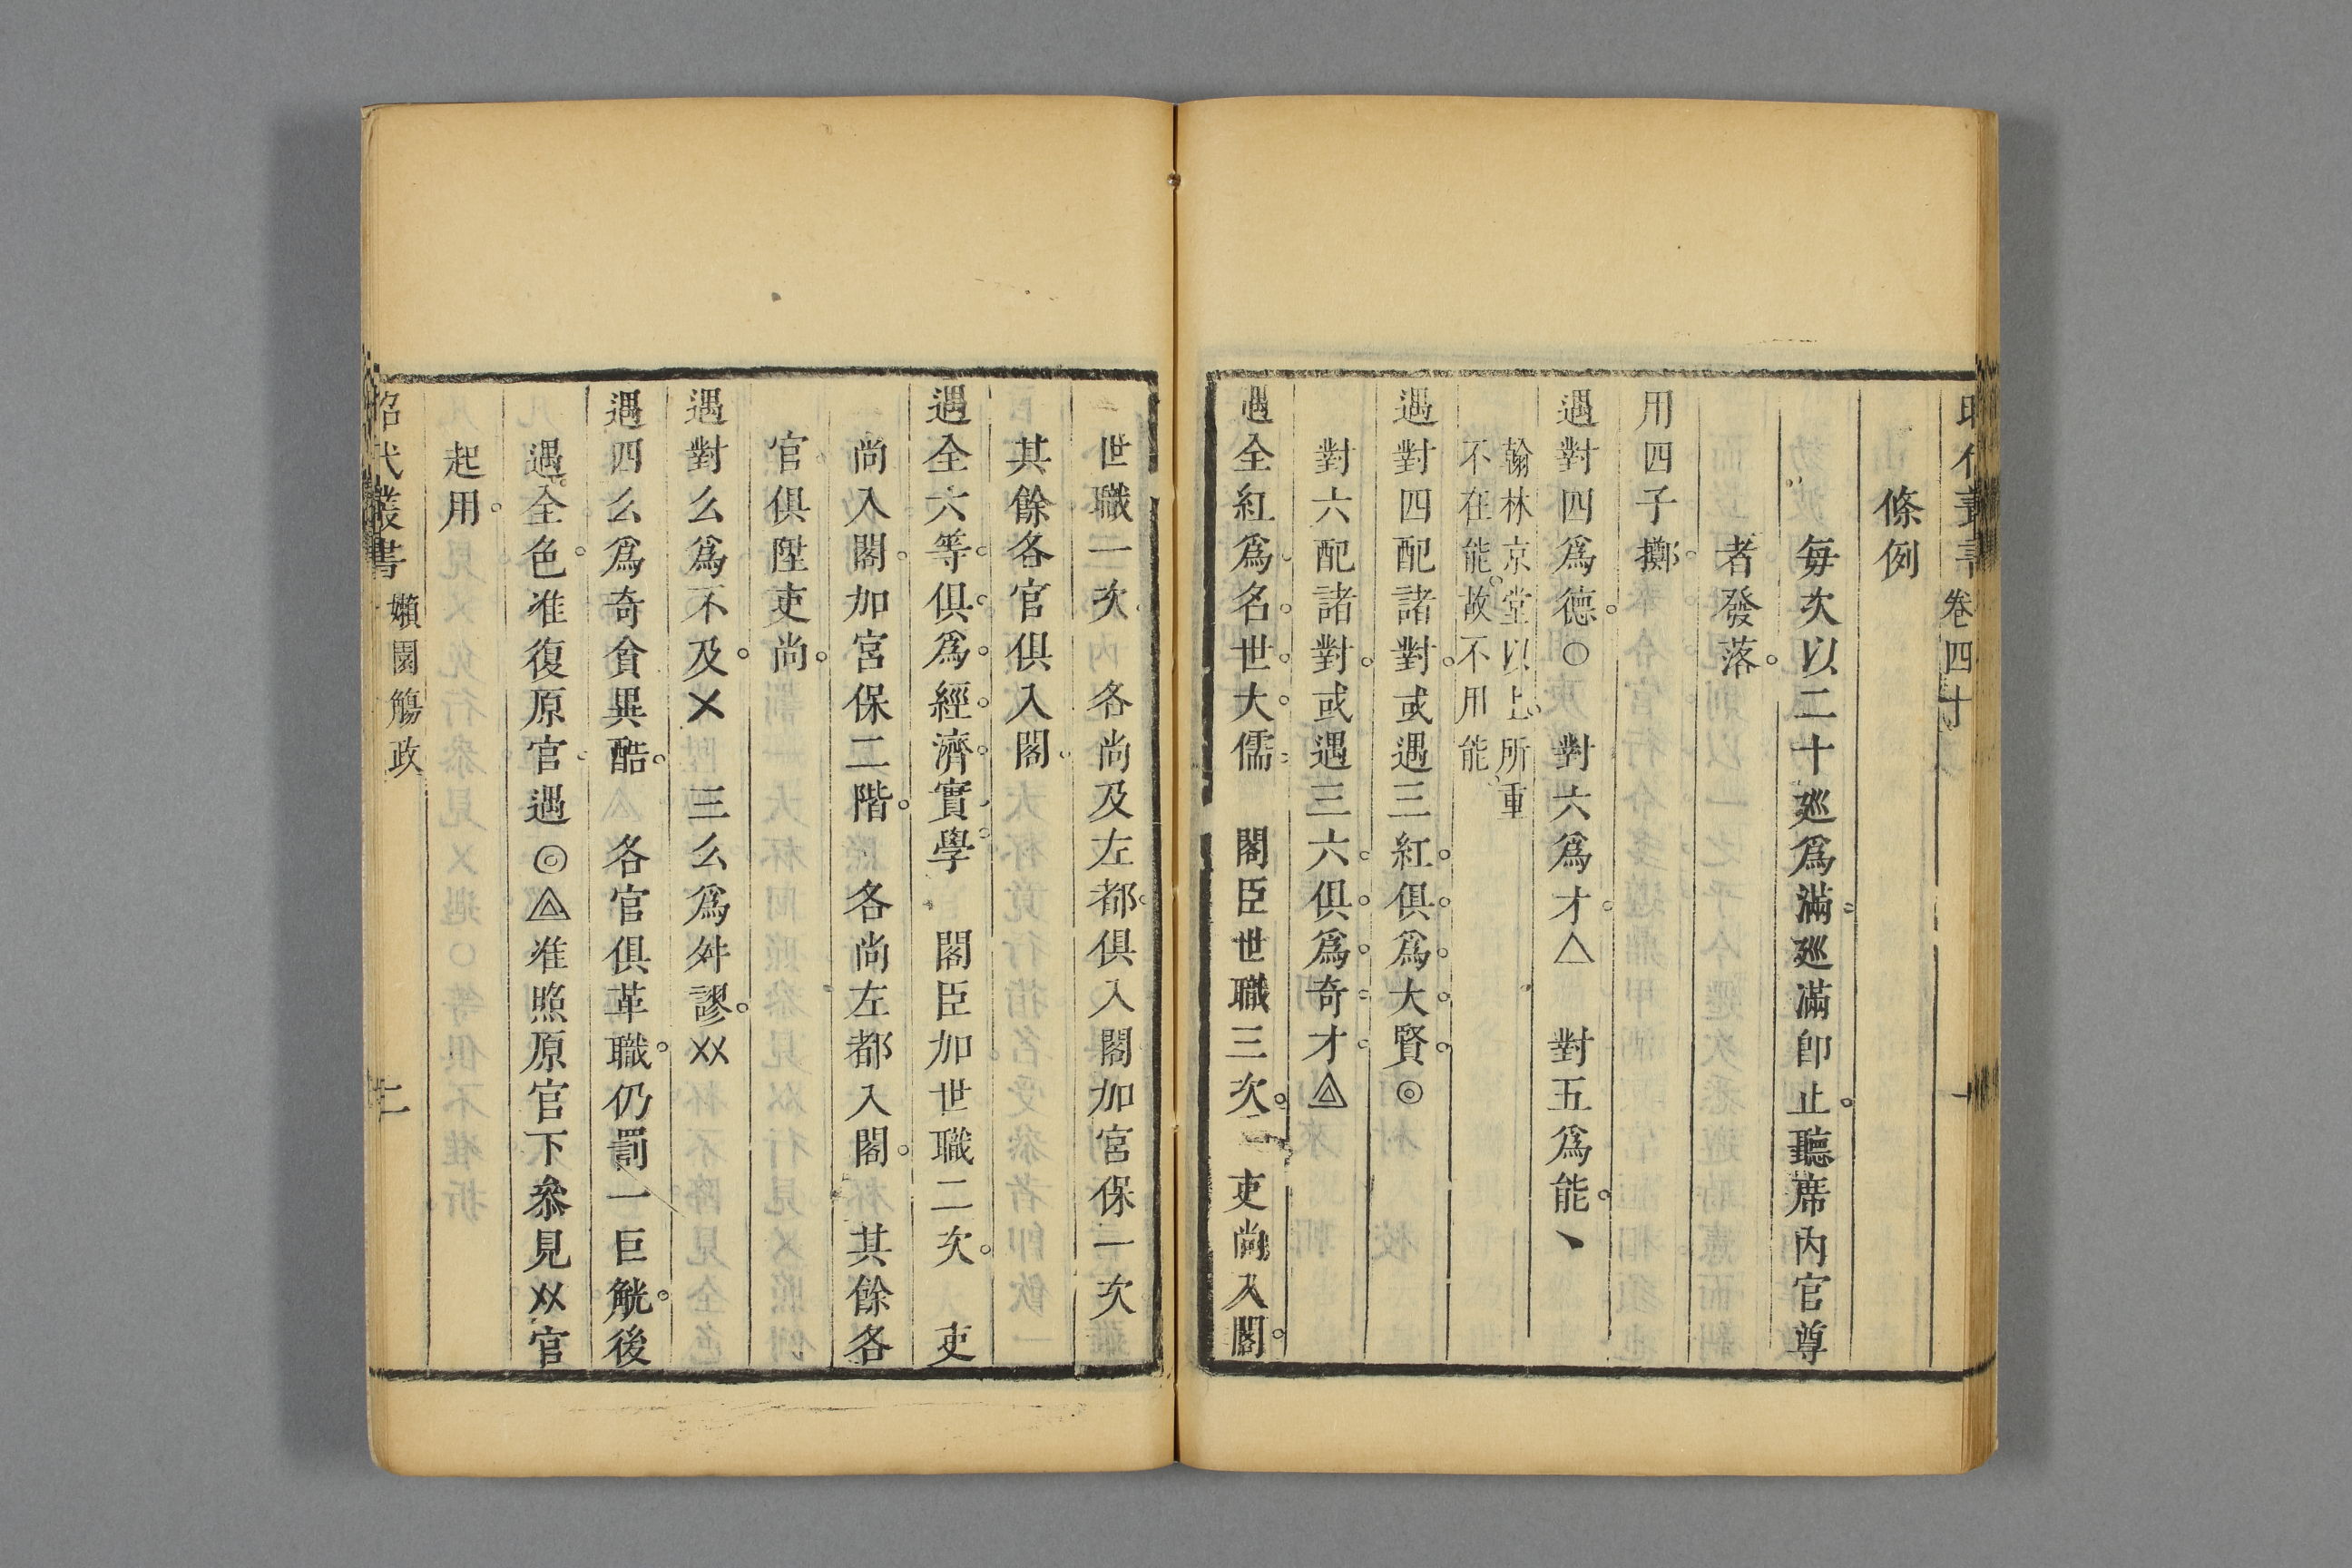 卷四十
條例
每次以二十廵爲滿廵滿卽止聽席內官尊
者發落
用四子擲
遇對四爲德○ 對六爲才△ 對五爲能丶
翰林京堂以上所重
不在能故不用能
遇對四配諸對或遇三紅俱爲大賢◎
對六配諸對或遇三六俱爲奇才
遇全紅爲名世大儒 閣臣世職三次 吏尚入閣
世職一次 各尚及左都俱入閣加宮保一次
其餘各官俱入閣
遇全六等俱爲經濟實學 閣臣加世職二次 吏
尚入閣加宮保二階 各尚左都入閣 其餘各
官俱陞吏尚
遇對么爲不及㐅 三么爲舛謬㐅㐅
遇四么爲奇貪異酷 各官俱革職仍罰一巨觥後
遇全色准復原官遇◎◬准照原官下叅見㐅㐅官
起用
昭代叢書 嬾園觴政 二